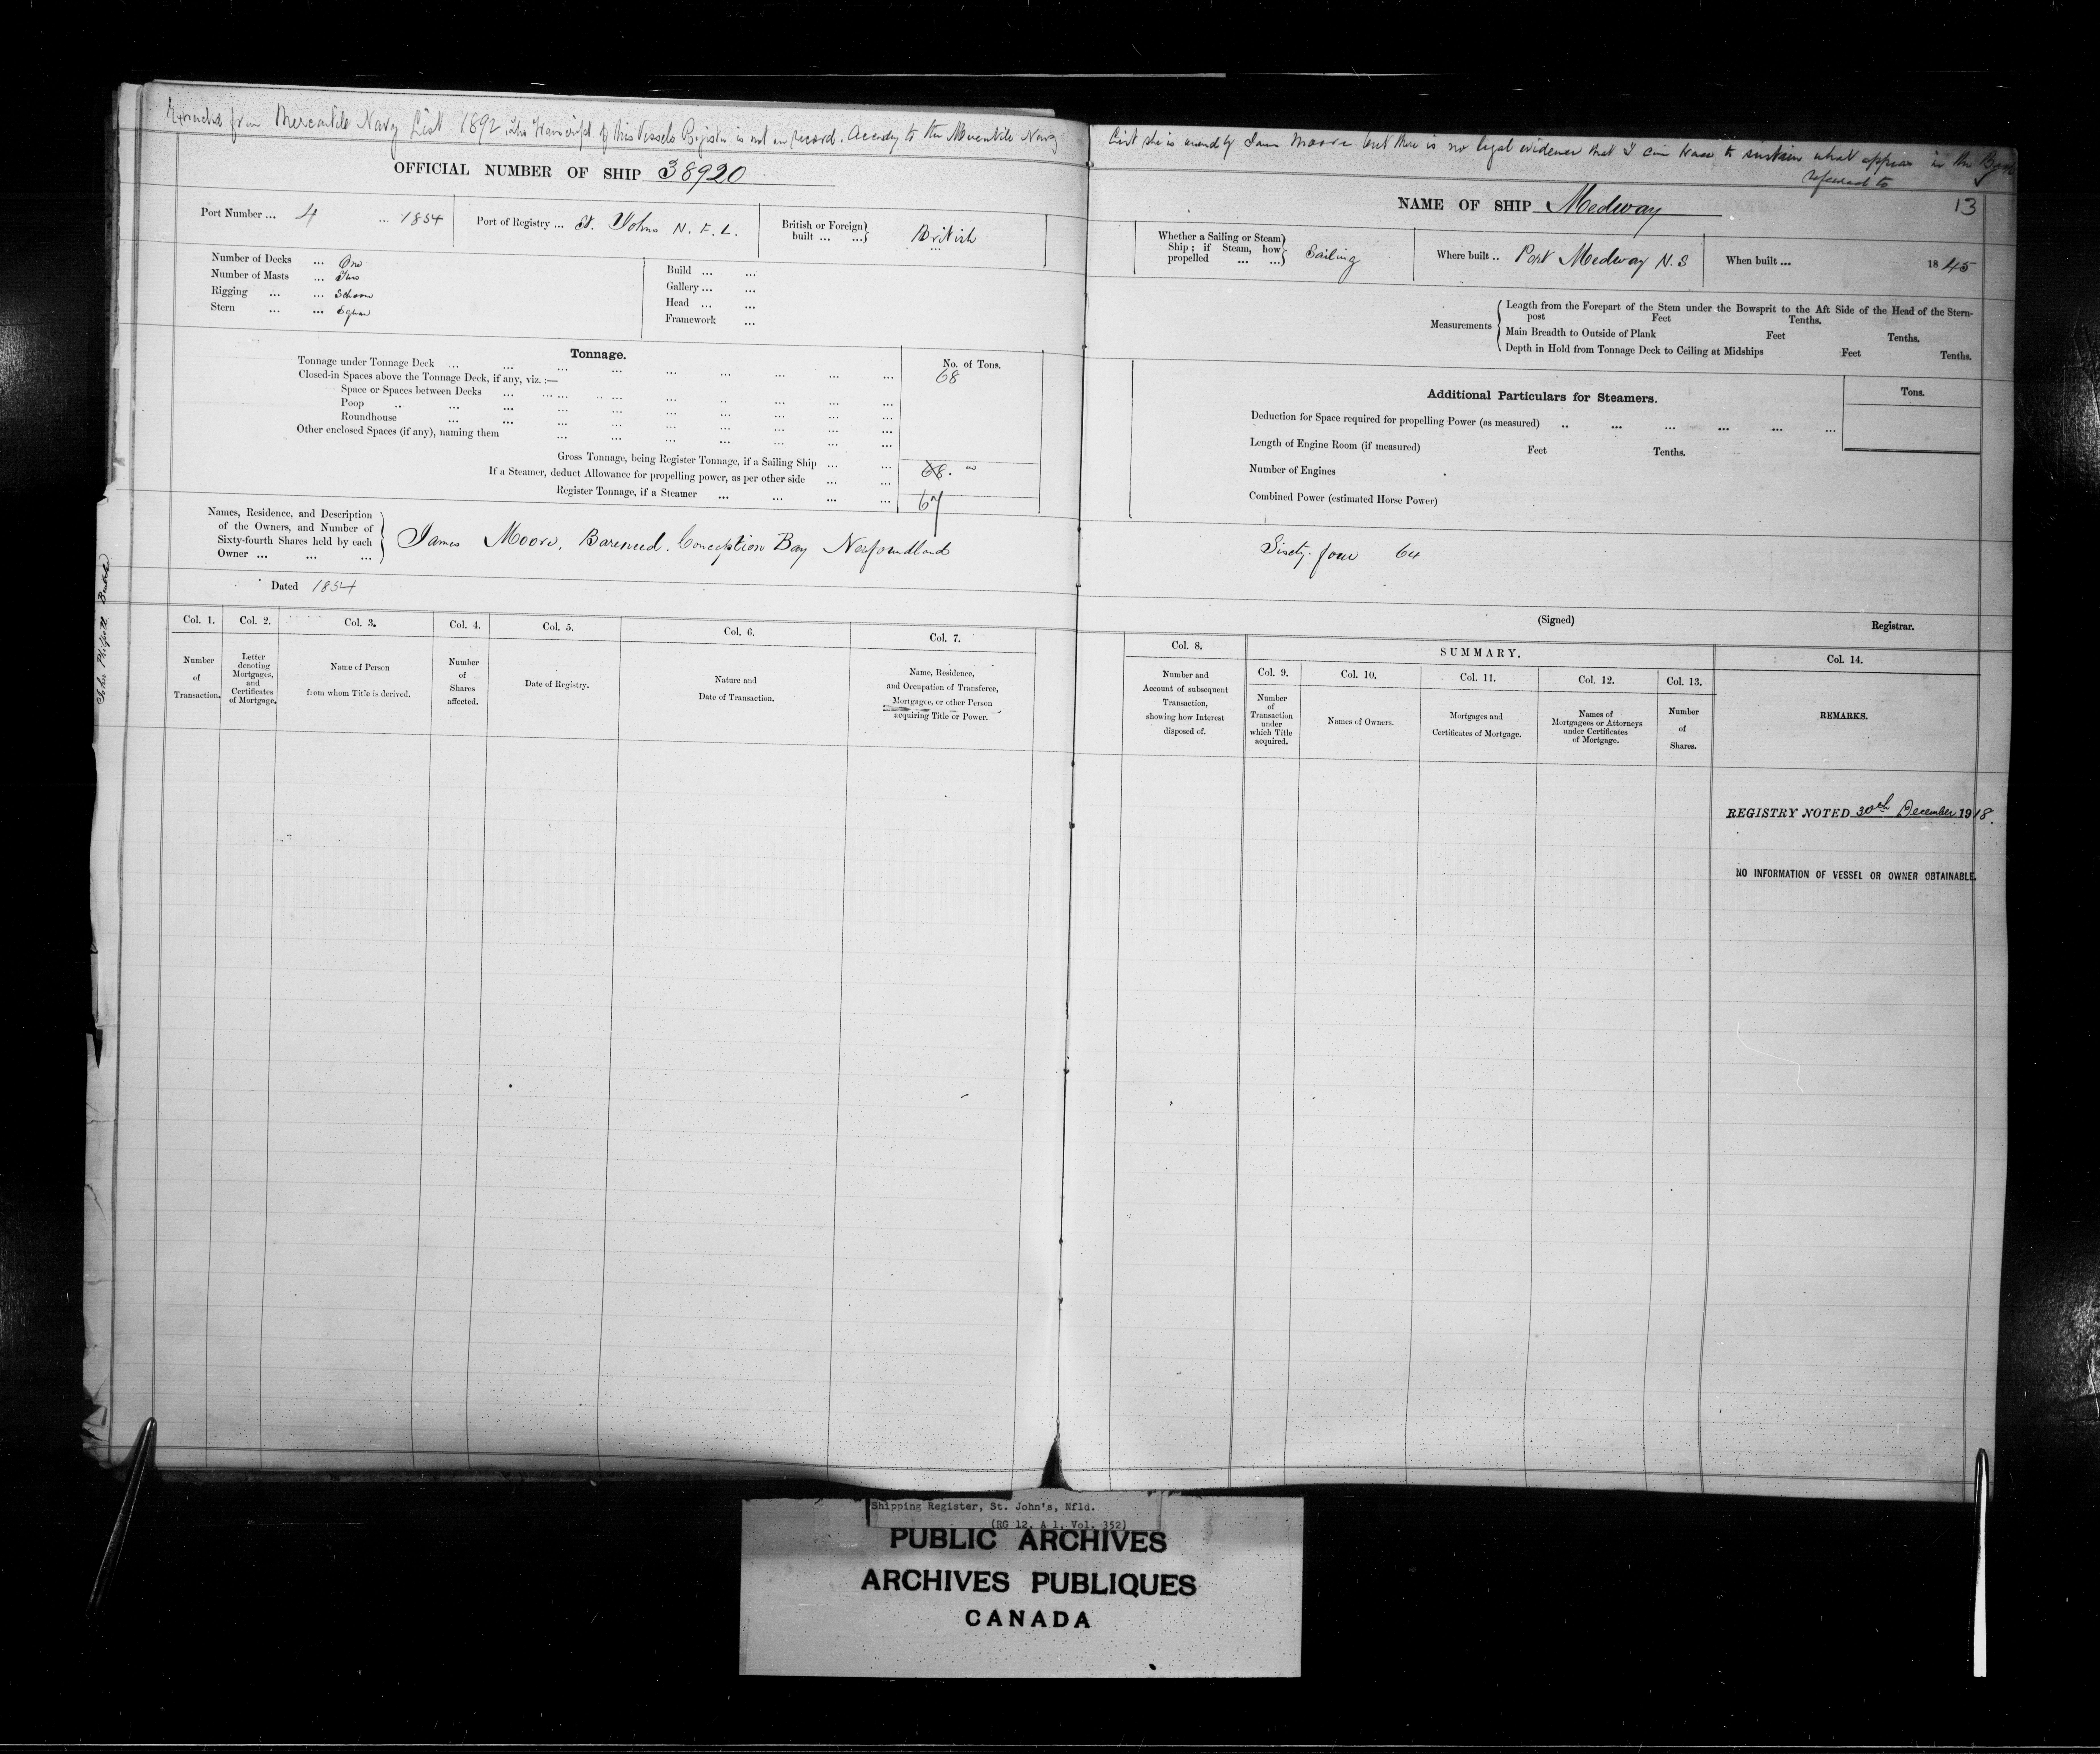 Extracted from Mercantile Navy List 1892, The Transcript of this Vessels Register is not on record. According to the Mercantile Navy
List she is owned by James Moore but there is no legal evidence that I can trace to sustain what appears in the Book
referred to
OFFICIAL NUMBER OF SHIP 38920
Port Number ... 4 ... 1854
Port of Registry ... St. Johns N. F. L.
British or Foreign built ... ... British
Number of Decks ... One
Number of Masts ... Two
Rigging ... ... Schoon
Stern ... ... Square
Build ... ...
Gallery ... ...
Head ... ...
Framework ...
Tonnage.
No. of Tons.
Tonnage under Tonnage Deck ... ... ... ... ... ... ... ... ... 68
Closed-in Spaces above the Tonnage Deck, if any, viz. :—
Space or Spaces between Decks ... ... ... ... ... ... ... ...
Poop ... ... ... ... ... ... ... ... ...
Roundhouse ... ... ... ... ... ... ... ...
Other enclosed Spaces (if any), naming them ... ... ... ... ... ... ...
Gross Tonnage, being Register Tonnage, if a Sailing Ship ... ... 68.
If a Steamer, deduct Allowance for propelling power, as per other side ... ...
Register Tonnage, if a Steamer ... ... ... ... 67
Names, Residence, and Description
of the Owners, and Number of
Sixty-fourth Shares held by each
Owner ... ... ...
James Moore, Bareneed. Conception Bay Newfoundland
Dated 1854
Col. 1. Col. 2. Col. 3. Col. 4. Col. 5. Col. 6. Col. 7.
Number
of
Transaction.
Letter
denoting
Mortgages,
and
Certificates
of Mortgage.
Name of Person
from whom Title is derived.
Number
of
Shares
affected.
Date of Registry.
Nature and
Date of Transaction.
Name, Residence,
and Occupation of Transferee,
Mortgagee, or other Person
acquiring Title or Power.
NAME OF SHIP Medway
13
Whether a Sailing or Steam
Ship ; if Steam, how
propelled ... ...
Sailing
Where built .. Port Medway N. S
When built ... 1845
Measurements
Length from the Forepart of the Stem under the Bowsprit to the Aft Side of the Head of the Stern-
post Feet Tenths.
Main Breadth to Outside of Plank Feet Tenths.
Depth in Hold from Tonnage Deck to Ceiling at Midships Feet Tenths.
Additional Particulars for Steamers.
Tons.
Deduction for Space required for propelling Power (as measured) .. ... ... ... ... ...
Length of Engine Room (if measured) Feet Tenths.
Number of Engines
Combined Power (estimated Horse Power)
Sixty-four 64
(Signed) Registrar.
Col. 8.
Number and
Account of subsequent
Transaction,
showing how Interest
disposed of.
SUMMARY.
Col. 9. Col. 10. Col. 11. Col. 12. Col. 13.
Number
of
Transaction
under
which Title
acquired.
Names of Owners.
Mortgages and
Certificates of Mortgage.
Names of
Mortgagees or Attorneys
under Certificates
of Mortgage.
Number
of
Shares.
Col. 14.
REMARKS.
REGISTRY NOTED 30th December 1918.
NO INFORMATION OF VESSEL OR OWNER OBTAINABLE.
Shipping Register, St. John's, Nfld.
(RG 12, A 1, Vol. 352)
PUBLIC ARCHIVES
ARCHIVES PUBLIQUES
CANADA